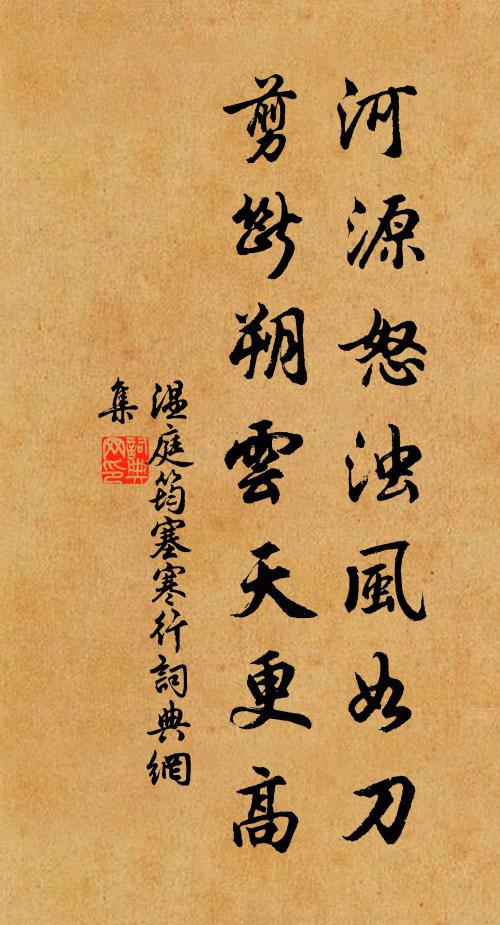 河源怒浊風如刀
剪斷朔雲天更高
温庭筠塞寒行詞典網
集
詞典網印